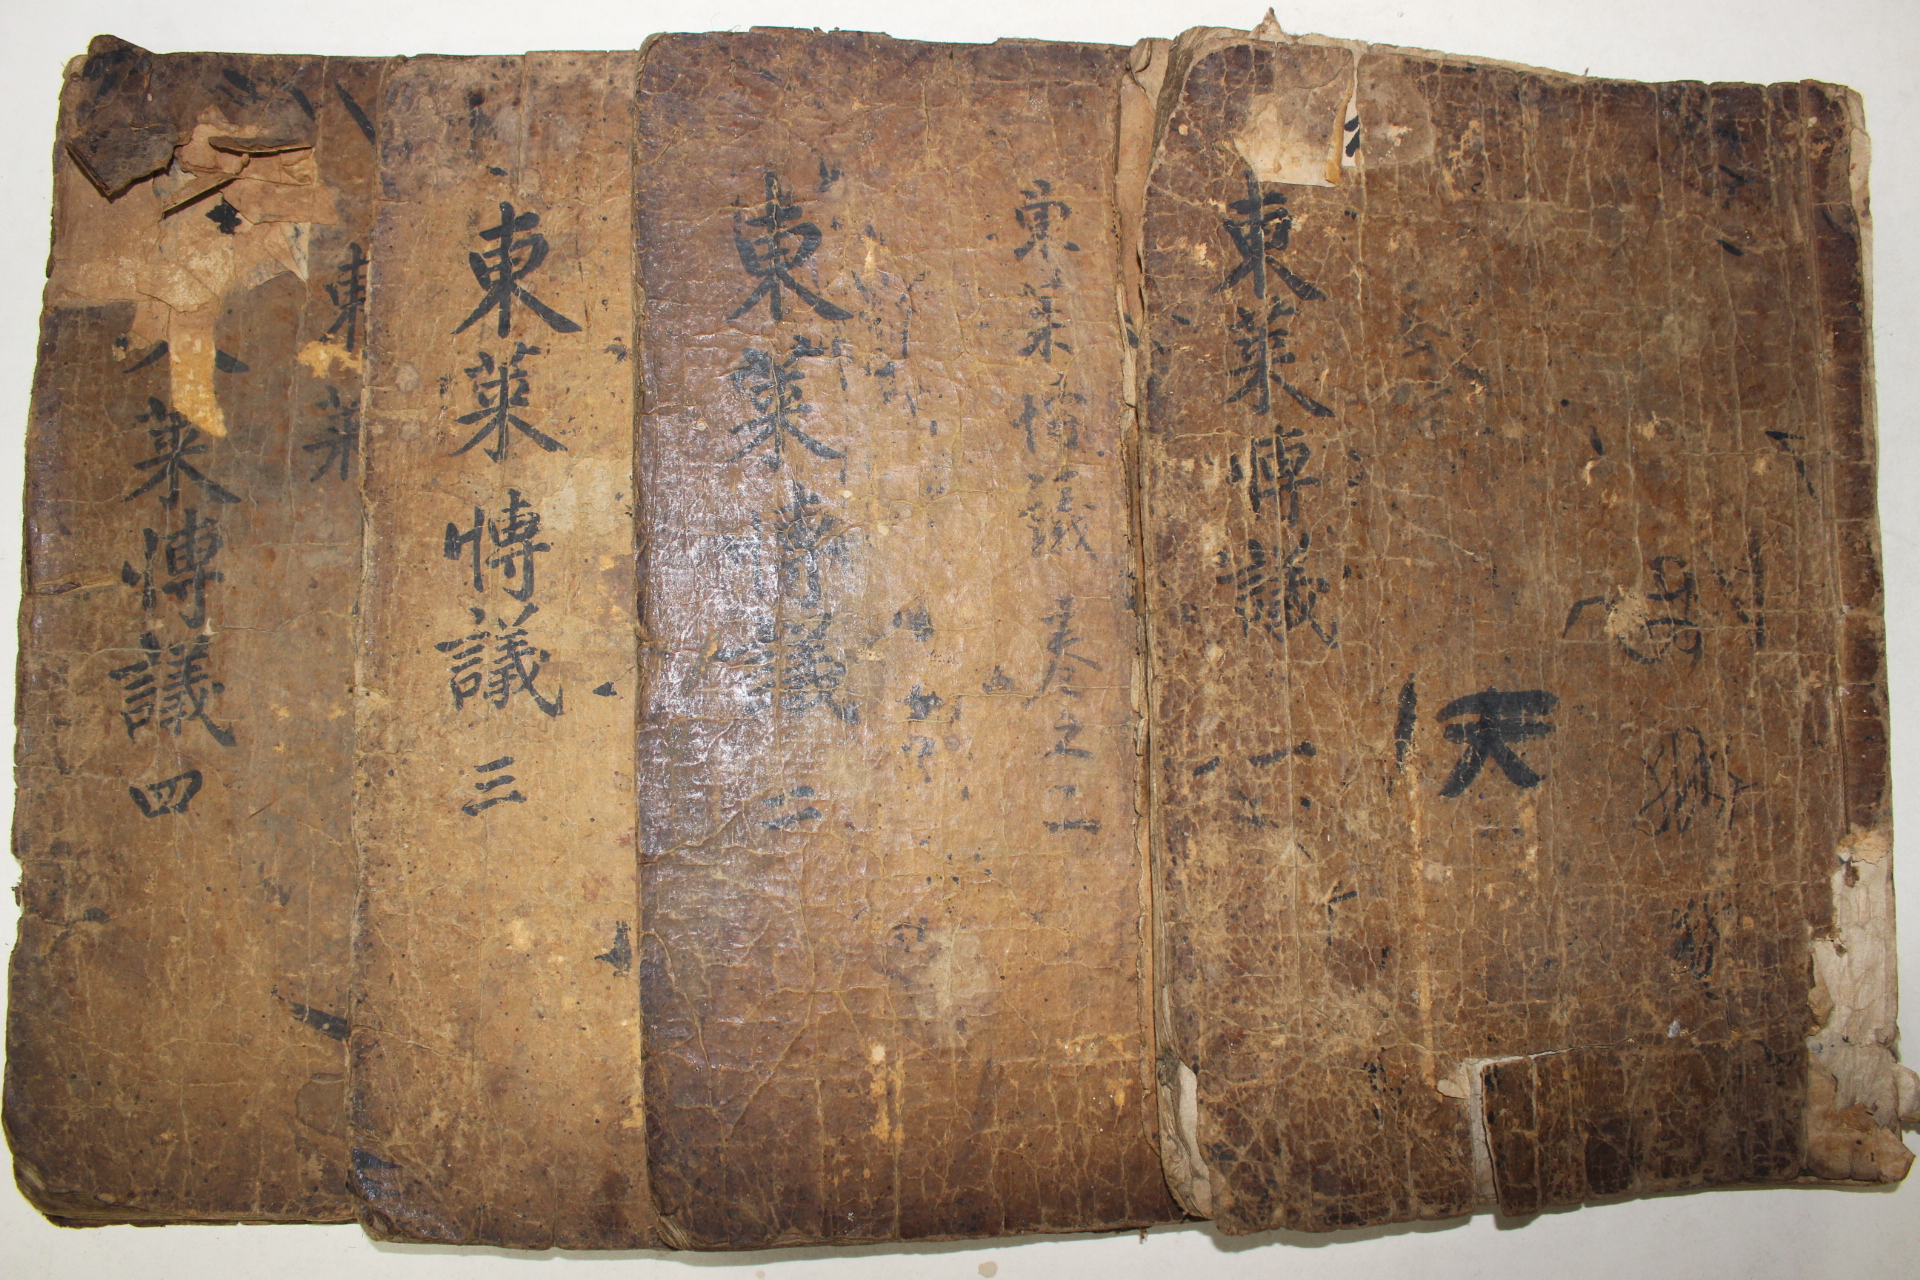 東萊愽議 一
天
東萊愽議 卷之二
東萊愽議 二
東萊愽議 三
東萊
萊愽議 四